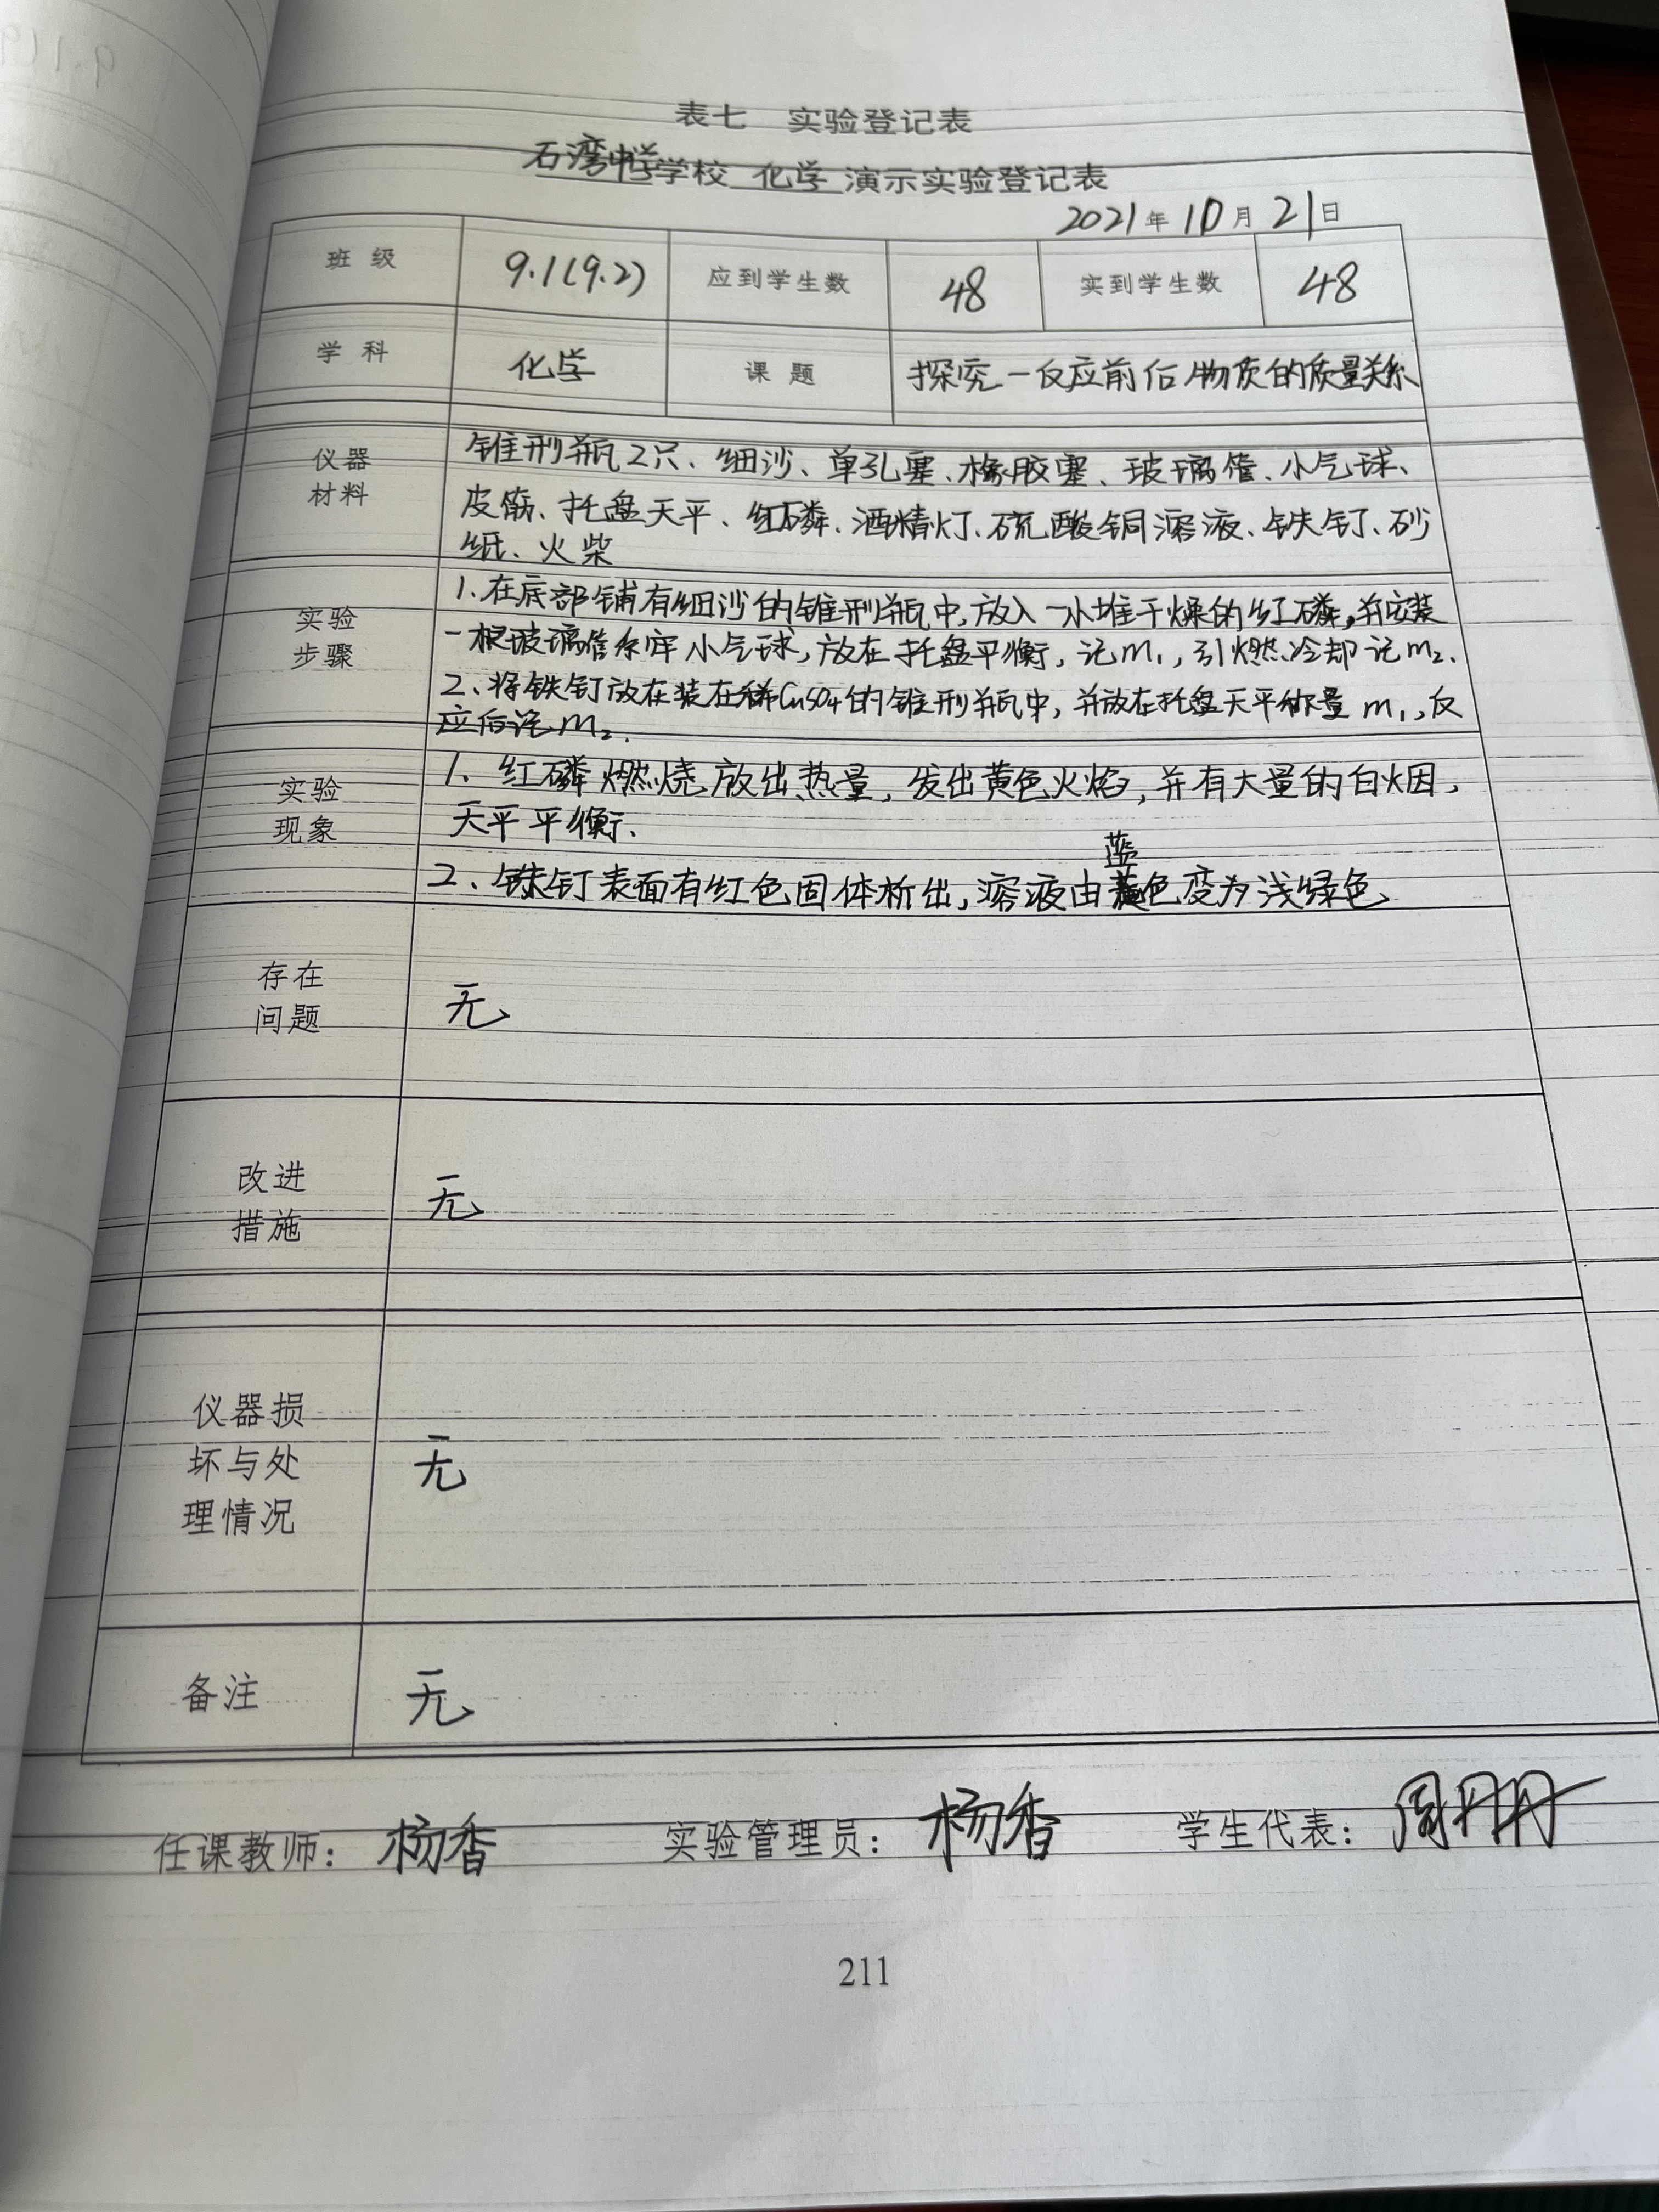 表七 实验登记表
石湾中学学校 化学 演示实验登记表
2021年10月21日
班级 9.1(9.2) 应到学生数 48 实到学生数 48
学科 化学 课题 探究一反应前后物质的质量关系
仪器材料
锥形瓶2只、细沙、单孔塞、橡胶塞、玻璃管、小气球、
皮筋、托盘天平、红磷、酒精灯、硫酸铜溶液、铁钉、砂
纸、火柴
实验步骤
1.在底部铺有细沙的锥形瓶中,放入一小堆干燥的红磷,并安装
一根玻璃管系牢小气球,放在托盘平衡,记m₁,引燃冷却记m₂、
2、将铁钉放在装在稀CuSO4的锥形瓶中,并放在托盘天平称量m₁,反
应后记m₂.
实验现象
1、红磷燃烧放出热量,发出黄色火焰,并有大量的白烟,
天平平衡、
2、铁钉表面有红色固体析出,溶液由蓝色变为浅绿色
存在问题
无
改进措施
无
仪器损坏与处理情况
无
备注
无
任课教师:杨香 实验管理员:杨香 学生代表:周丹丹
211